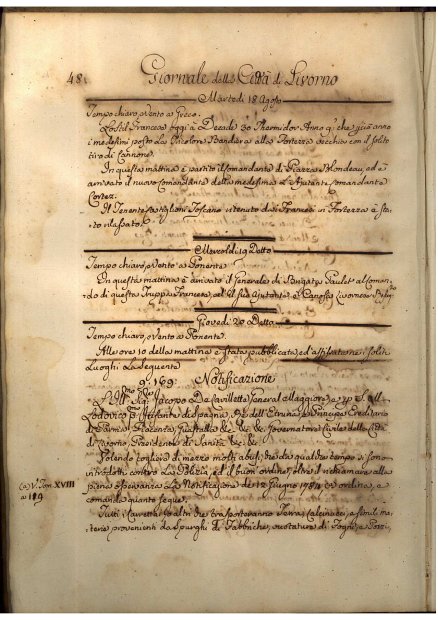 48.
Giornale della Città di Livorno
Martedì 18 Agosto
Tempo chiaro, e Vento a Greco.
Lo stil Francese Oggi è Decade 30 Thermidor Anno 9° che già anno
i medesimi posto la Tricolore Bandiera alla Fortezza vecchia con il solito
tiro di Cannone.
In questa mattina è partito il Comandante di Piazza Mondeau, ed è
arrivato il nuovo Comandante della medesima l'Ajutante Comandante
Cortez.
Il Tenente Castiglioni Toscano ritenuto da i Francesi in Fortezza è sta-
to rilassato.
Mercoldì 19 Detto
Tempo chiaro, e Vento a Ponente.
In questa mattina è arrivato il Generale di Brigata Paulet al Coman-
do di questa Truppa Francese, ed il suo Ajutante è Livornese
Giovedì 20 Detto
Tempo chiaro, e Vento a Ponente.
Alle ore 10 della mattina è stata pubblicata, ed affissata ne i soliti
Luoghi la seguente
169: Notificazione
L' Ill.mo Sig. Jacopo De Lavillette General Maggiore e per S. A. R.
Lodovico P.mo Infante di Spagna, Re dell'Etruria, Principe Ereditario
di Parma, Piacenza, Guastalla &c. &c. &c. Governatore Civile della Città
di Livorno, Presidente di Sanità &c. &c.
Volendo togliere di mezzo molti abusi, che da qualche tempo si sono
introdotti contro la Pulizia, ed il buon ordine, oltre il richiamare alla
piena osservanza la Notificazione de 12 Giugno 1784 si ordina, e
comanda quanto segue.
Tutti i Carretti, o altri che trasporteranno Terra, Calcinacci, e simili ma-
terie provenienti da Spurghi di Fabbriche, vuotature di Fogne, e Pozzi,
Tom. XVIII
a 119